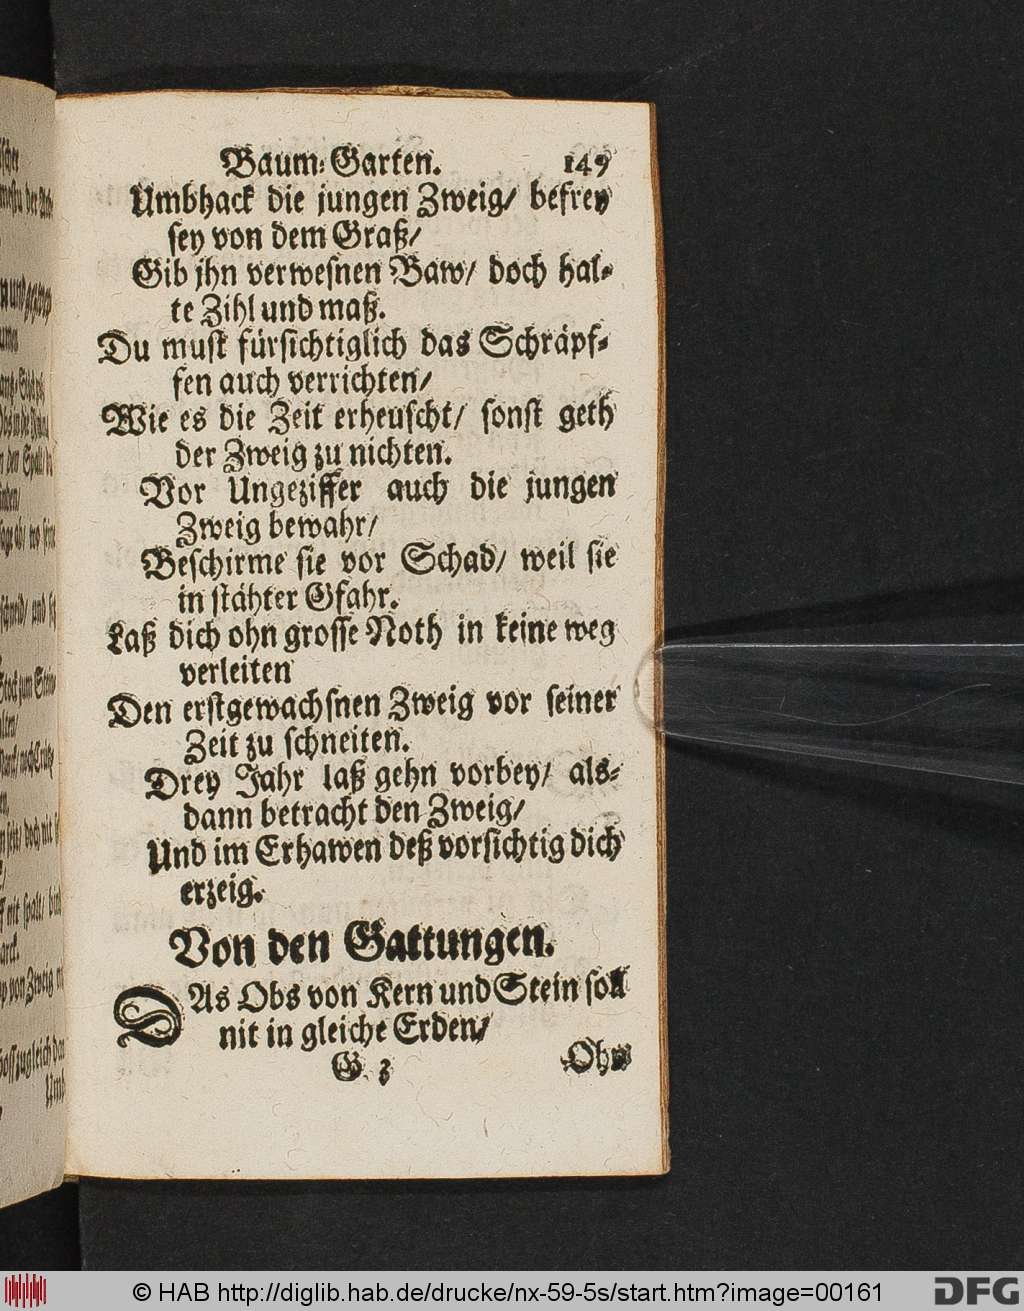 Baum-Garten. 149
Umbhack die jungen Zweig/ befrey
sey von dem Graß/
Gib jhn verwesnen Baw/ doch hal-
te Zihl und maß.
Du must fürsichtiglich das Schräpf-
fen auch verrichten/
Wie es die Zeit erheuscht/ sonst geth
der Zweig zu nichten.
Vor Ungeziffer auch die jungen
Zweig bewahr/
Beschirme sie vor Schad/ weil sie
in stähter Gfahr.
Laß dich ohn grosse Noth in keine weg
verleiten
Den erstgewachsnen Zweig vor seiner
Zeit zu schneiten.
Drey Jahr laß gehn vorbey/ als-
dann betracht den Zweig/
Und im Erhawen deß vorsichtig dich
erzeig.
Von den Gattungen.
DAs Obs von Kern und Stein soll
nit in gleiche Erden/
G 3 Ohn
© HAB http://diglib.hab.de/drucke/nx-59-5s/start.htm?image=00161 DFG